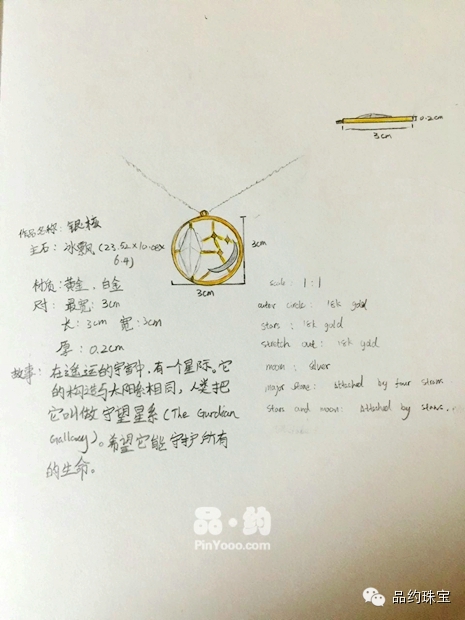 0.2cm
3cm
作品名称：银核
主石：冰飘(23.52×10.08×
6.4)
3cm
3cm
材质：黄金、白金
尺寸：最宽：3cm
长：3cm 宽：3cm
厚：0.2cm
故事：在遥远的宇宙中，有一个星际。它
的构造与太阳系相同，人类把
它叫做守望星系(The Gurdian
Gallaxy)。希望它能守护所有
的生命。
scale : 1:1
outer circle : 18k gold
stars : 18k gold
stretch out : 18k gold
moon : silver
major stone : Attached by four stems
stars and moon : Attached by stems..
品·约
PinYooo.com
品约珠宝